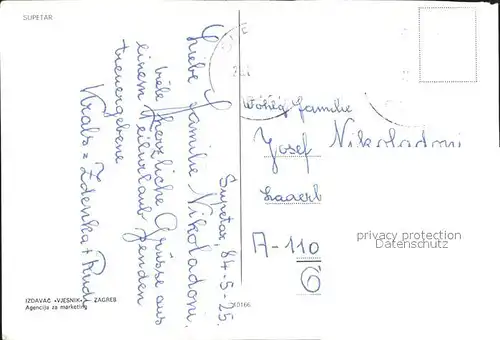 SUPETAR
Supetar, 84-5-25.
Liebe Familie Nikoladoni
viele Herzliche Grüsse aus
einem Feierurlaub senden
treuergebene
Krals = Zdenka + Rudi
IZDAVAČ «VJESNIK» ZAGREB
Agencija za marketing
Familie
Josef Nikoladoni
Laaerb
A-110
Ö
privacy protection
Datenschutz